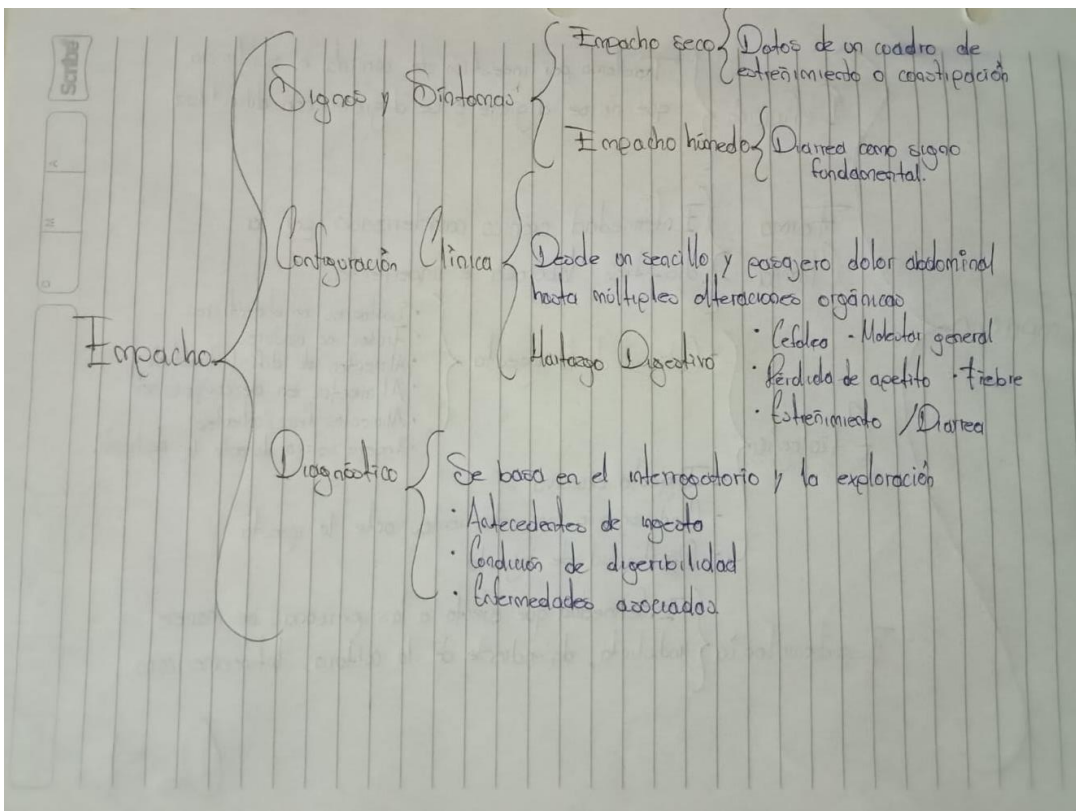 Scribe
Empacho
Signos y Síntomas
Empacho seco
Datos de un cuadro de
estreñimiento o constipación
Empacho húmedo
Diarrea como signo
fundamental.
Configuración Clínica
Desde un sencillo y pasajero dolor abdominal
hasta múltiples alteraciones orgánicas
Hartazgo Digestivo
· Cefalea · Malestar general
· Pérdida de apetito · Fiebre
· Estreñimiento / Diarrea
Diagnóstico
Se basa en el interrogatorio y la exploración
· Antecedentes de ingesta
· Condición de digeribilidad
· Enfermedades asociadas